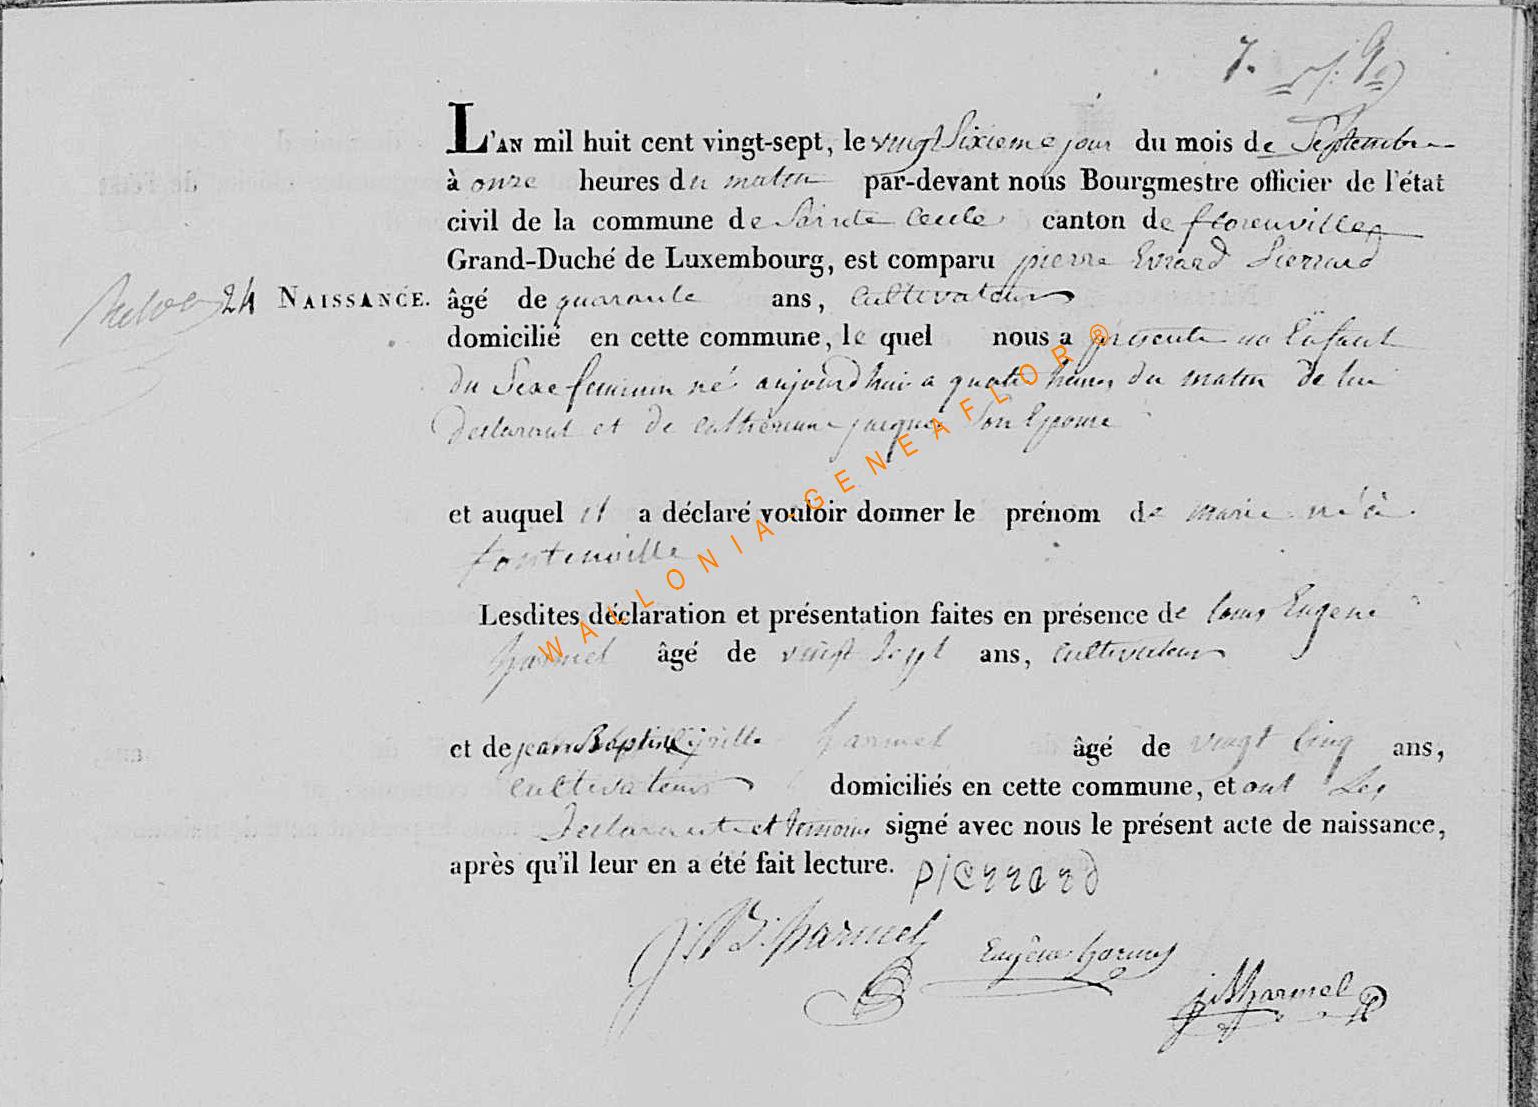 7.
L'AN mil huit cent vingt-sept, le vingt Sixieme jour du mois de Septembre
à onze heures du matin par-devant nous Bourgmestre officier de l'état
civil de la commune de Sainte Cecile canton de florenville
Grand-Duché de Luxembourg, est comparu pierre Evrard Pierrard
24 NAISSANCE. âgé de quarante ans, Cultivateur
domicilié en cette commune, le quel nous a présenté un Enfant
du Sexe feminin né aujourd'hui a quatre heures du matin de lui
declarant et de catherinne jacques Son Epouse
et auquel il a déclaré vouloir donner le prénom de marie né à
fontenoille
Lesdites déclaration et présentation faites en présence de louis Eugene
harmel âgé de vingt Sept ans, cultivateur
et de jean Baptiste Cyrille harmel âgé de vingt Cinq ans,
cultivateur domiciliés en cette commune, et ont Les
Declarant et temoins signé avec nous le présent acte de naissance,
après qu'il leur en a été fait lecture. pierrard
J. B. harmel
Eugène harmel
j B harmel
WALLONIA-GENEAFLOR®